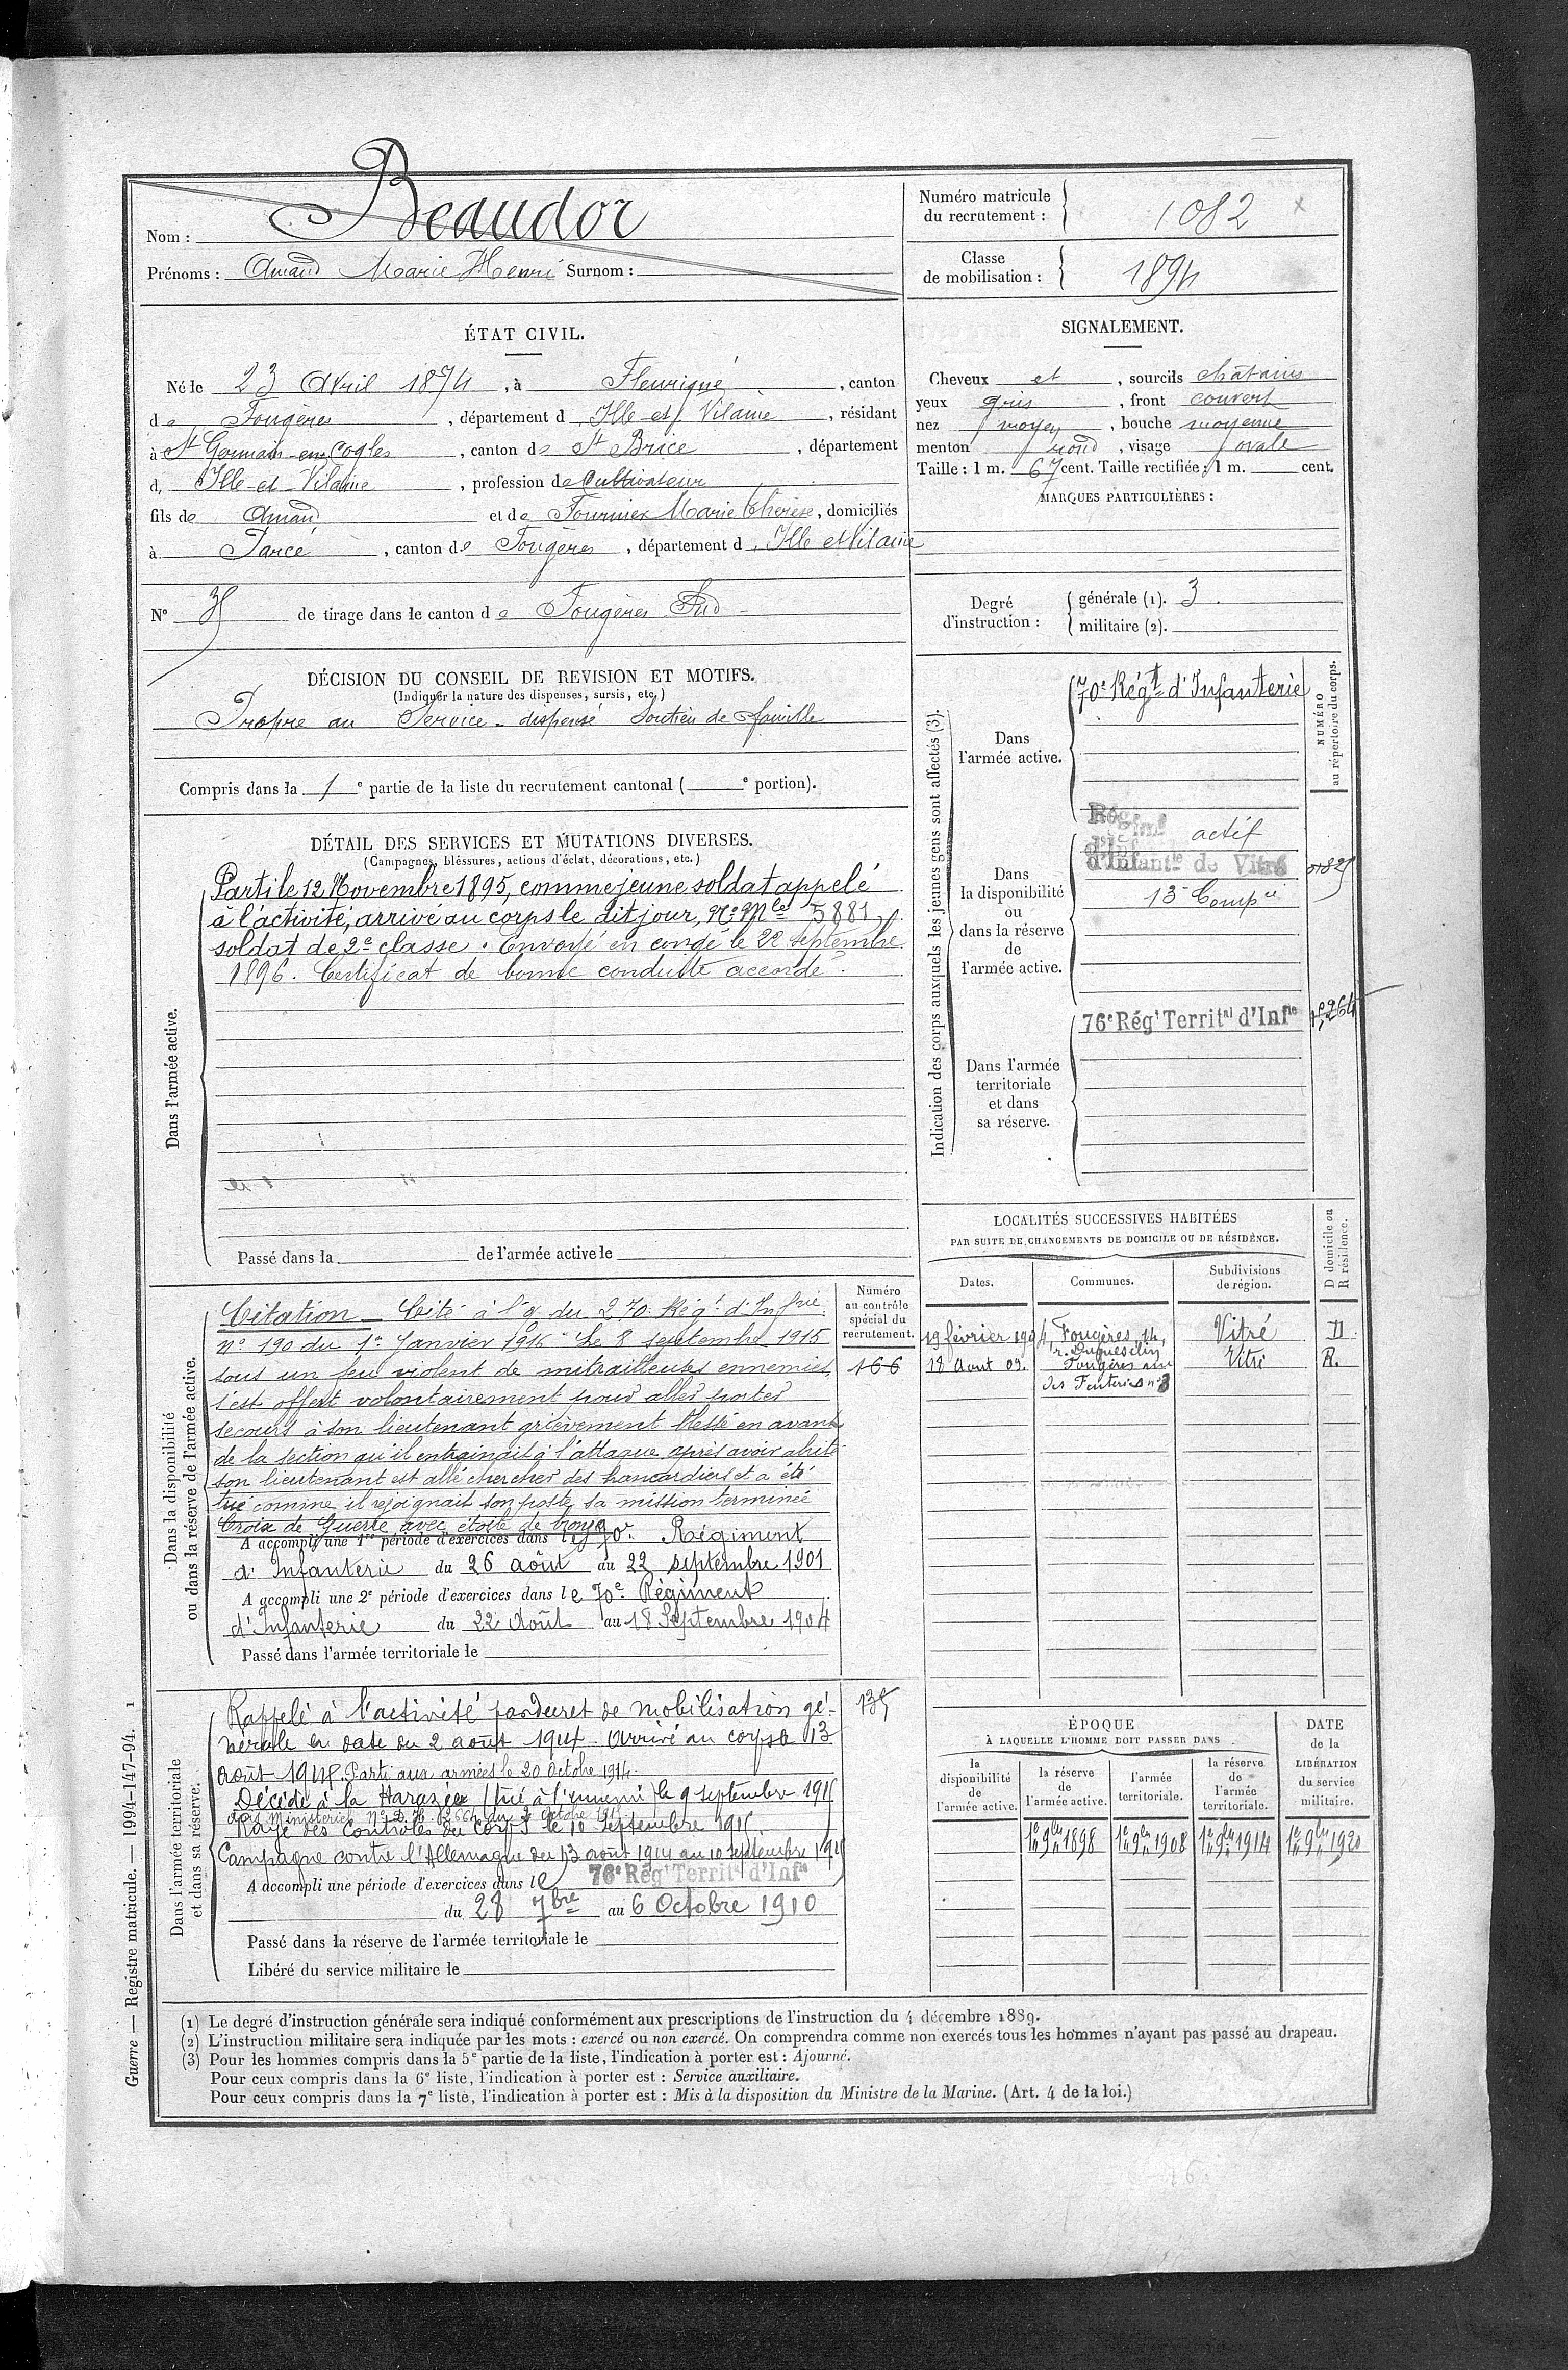 Nom : Beaudor
Prénoms : Amand Marie Henri Surnom :
Numéro matricule
du recrutement : 1082 x
Classe
de mobilisation : 1894
ÉTAT CIVIL.
Né le 23 Avril 1874, à Fleurigné, canton
de Fougères, département d Ille-et-Vilaine, résidant
à St Germain-en-Cogles, canton de St Brice, département
d, Ille-et-Vilaine, profession de Cultivateur
fils de Amand et de Fournier Marie Thérèse, domiciliés
à Parcé, canton de Fougères, département d, Ille et Vilaine
N° de tirage dans le canton de Fougères Sud
DÉCISION DU CONSEIL DE REVISION ET MOTIFS.
(Indiquer la nature des dispenses, sursis, etc.)
Propre au Service - dispensé Soutien de famille
Compris dans la 1e partie de la liste du recrutement cantonal ( e portion).
SIGNALEMENT.
Cheveux et, sourcils châtains
yeux gris, front couvert
nez moyen, bouche moyenne
menton rond, visage ovale
Taille : 1 m. 67 cent. Taille rectifiée : 1 m. cent.
MARQUES PARTICULIÈRES :
Degré
d'instruction :
générale (1). 3.
militaire (2).
DÉTAIL DES SERVICES ET MUTATIONS DIVERSES.
(Campagnes, blessures, actions d'éclat, décorations, etc.)
Dans l'armée active.
Parti le 12 Novembre 1895, comme jeune soldat appelé
à l'activité, arrivé au corps le dit jour, No Mle 5881,
soldat de 2e classe. Envoyé en congé le 22 septembre
1896. Certificat de bonne conduite accordé.
Passé dans la de l'armée active le
Indication des corps auxquels les jeunes gens sont affectés (3).
NUMÉRO
au répertoire du corps.
Dans
l'armée active.
70e Régt d'Infanterie
Dans
la disponibilité
ou
dans la réserve
de
l'armée active.
actif
d'Infantie de Vitré
13e Compie
Dans l'armée
territoriale
et dans
sa réserve.
76e Régt Territal d'Infie
LOCALITÉS SUCCESSIVES HABITÉES
PAR SUITE DE CHANGEMENTS DE DOMICILE OU DE RÉSIDENCE.
Dates.
Communes.
Subdivisions
de région.
D domicile ou
R résidence.
19 février 1904 Fougères, 14, Vitré D.
r. Duguesclin
18 Aout 09. Fougères rue Vitré R.
des Feuteries n° 3
Dans la disponibilité
ou dans la réserve de l'armée active.
Numéro
au contrôle
spécial du
recrutement.
166
Citation - Cité à l'o du 270e Régt d'Infrie
n° 190 du 1er Janvier 1916 "Le 8 septembre 1915
sous un feu violent de mitrailleuses ennemies,
s'est offert volontairement pour aller porter
secours à son lieutenant grièvement blessé en avant
de la section qu'il entrainait à l'attaque, après avoir abrité
son lieutenant est allé chercher des brancardiers et a été
tué comme il rejoignait son poste, sa mission terminée
Croix de Guerre avec étoile de bronze
A accompli une 1re période d'exercices dans le 70e Régiment
d'Infanterie du 26 août au 22 septembre 1901
A accompli une 2e période d'exercices dans le 70e Régiment
d'Infanterie du 22 Août au 18 Septembre 1904
Passé dans l'armée territoriale le
Dans l'armée territoriale
et dans sa réserve.
135
Rappelé à l'activité par decret de mobilisation gé-
nérale en date du 2 août 1914. Arrivé au corps le 13
août 1914. Parti aux armées le 20 Octobre 1914.
Décédé à la Harazée (tué à l'ennemi) le 9 septembre 1915
Rayé des Contrôles du Corps le 10 septembre 1915.
Campagne contre l'Allemagne du 13 août 1914 au 10 septembre 1915
A accompli une période d'exercices dans le 76e Régt Territal d'Infie
du 28 7bre au 6 Octobre 1910
Passé dans la réserve de l'armée territoriale le
Libéré du service militaire le
ÉPOQUE
À LAQUELLE L'HOMME DOIT PASSER DANS
DATE
de la
LIBÉRATION
du service
militaire.
la
disponibilité
de
l'armée active.
la réserve
de
l'armée active.
l'armée
territoriale.
la réserve
de
l'armée
territoriale.
1er 9bre 1898 1er 9bre 1908 1er 9bre 1914 1er 9bre 1920
(1) Le degré d'instruction générale sera indiqué conformément aux prescriptions de l'instruction du 4 décembre 1889.
(2) L'instruction militaire sera indiquée par les mots : exercé ou non exercé. On comprendra comme non exercés tous les hommes n'ayant pas passé au drapeau.
(3) Pour les hommes compris dans la 5e partie de la liste, l'indication à porter est : Ajourné.
Pour ceux compris dans la 6e liste, l'indication à porter est : Service auxiliaire.
Pour ceux compris dans la 7e liste, l'indication à porter est : Mis à la disposition du Ministre de la Marine. (Art. 4 de la loi.)
Guerre — Registre matricule. — 1994-147-94. 1